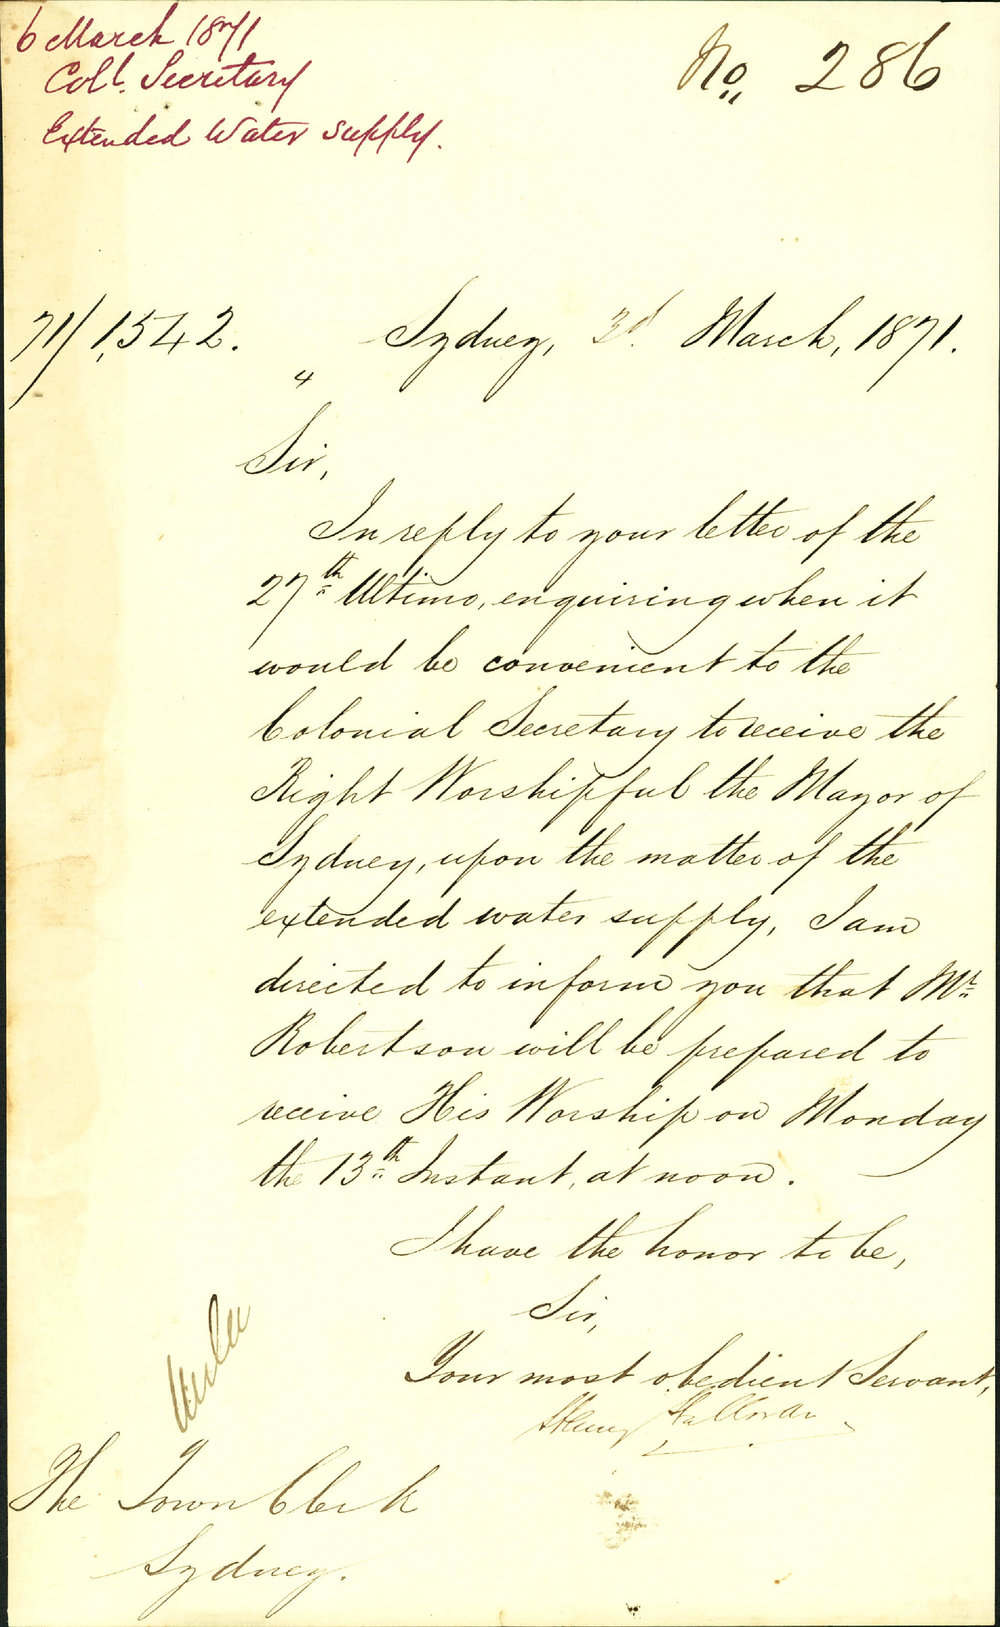 6 March 1871
Col<sup>l</sup>. Secretary
Extended Water supply.
No. 286
71/1,542.
Sydney, 3d. March, 1871.
Sir,
In reply to your letter of the
27th Ultimo, enquiring when it
would be convenient to the
Colonial Secretary to receive the
Right Worshipful the Mayor of
Sydney, upon the matter of the
extended water supply, I am
directed to inform you that Mr.
Robertson will be prepared to
receive His Worship on Monday
the 13th Instant, at noon.
I have the honor to be,
Sir,
Your most obedient Servant,
Henry Halloran
The Town Clerk
Sydney.